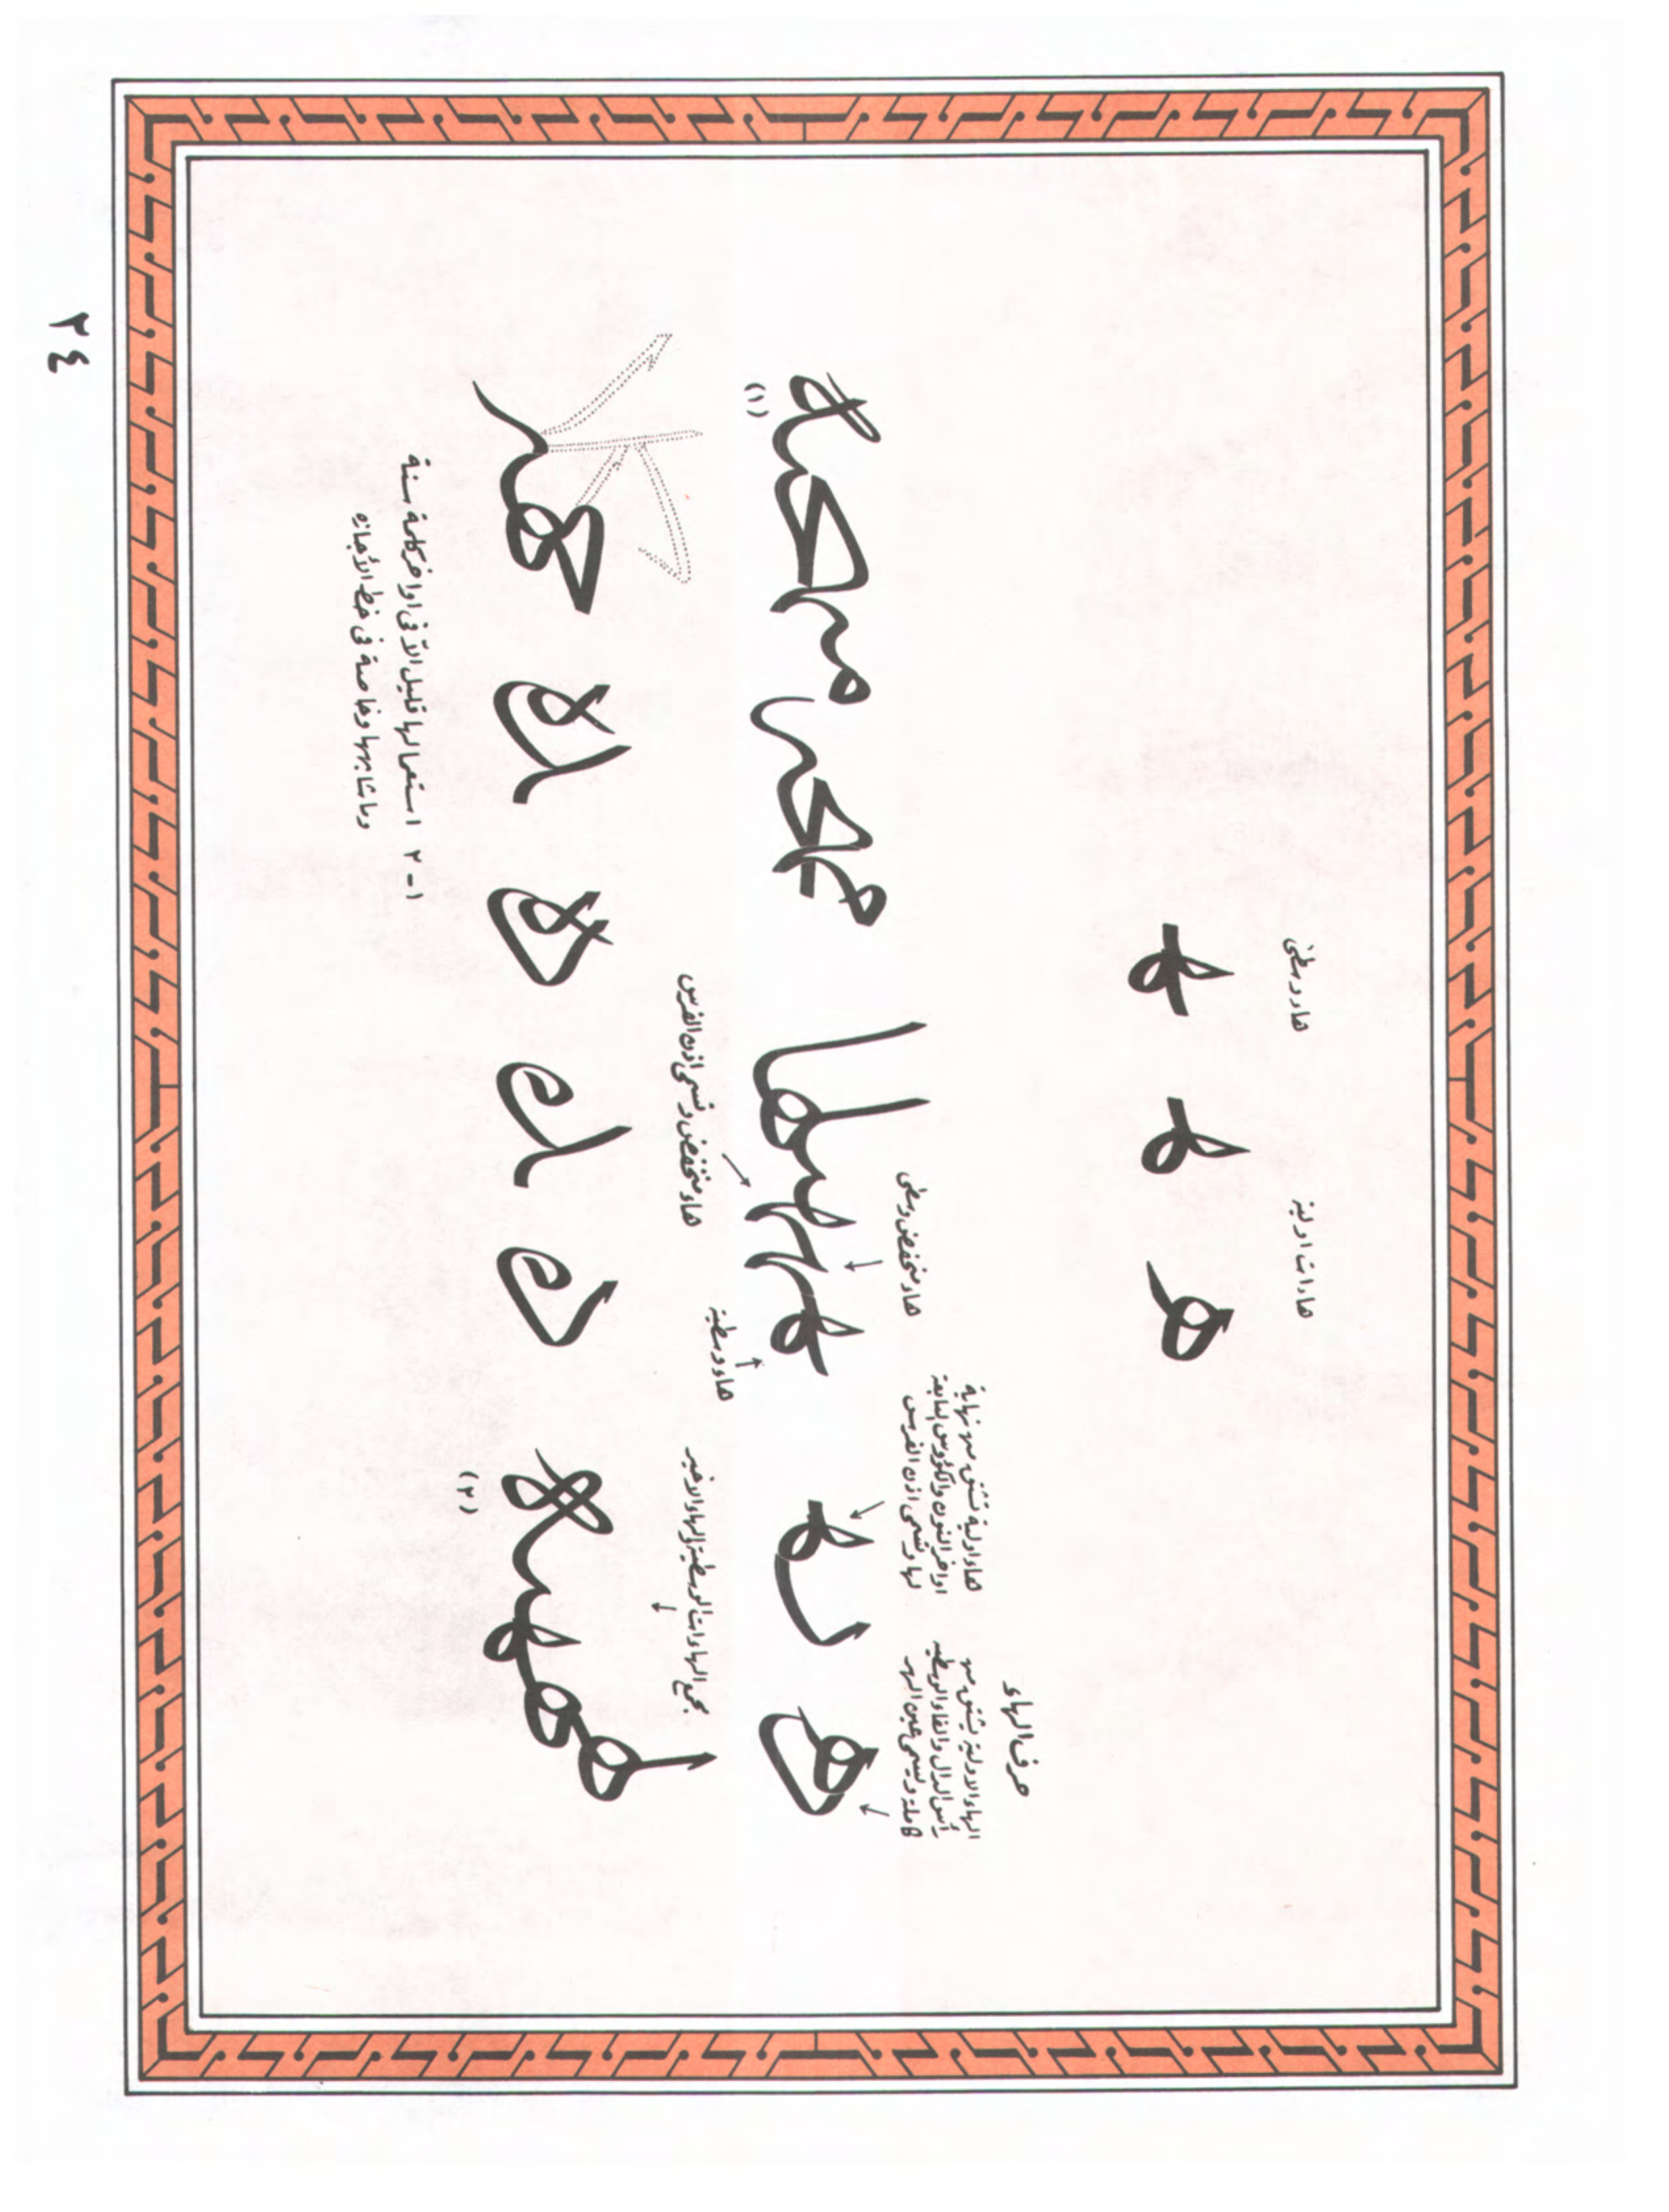 هاءات اولية
هاء وسطى
حرف الهاء
الهاء الاولية يشتق من
رأس الدال والفاء الوسطية
كاملة ويسمى عين الهر
هاء اولية تشتق من نهاية
اواخر النون والكؤوس المشابهة
لها وتسمى اذن الفرس
هاء منخفض وسطى
هاء وسطية
هاء منخفض وتسمى اذن الفرس
(١)
جمع الهاءات الوسطية والهاء الاخير
(٢)
١-٢ استعمالها قليل الآ في اواخر كلمة سنة
وماشابهها وخاصة في خط الأجازه
٢٤